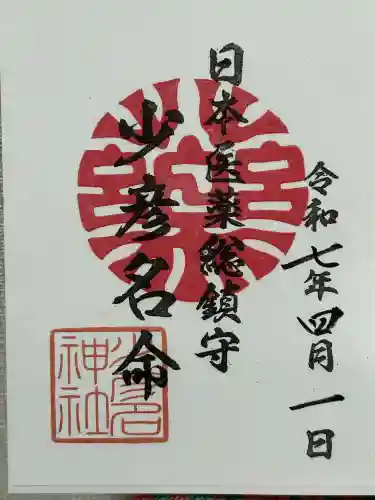 令和七年四月一日
日本医薬総鎮守
少彦名命
神社